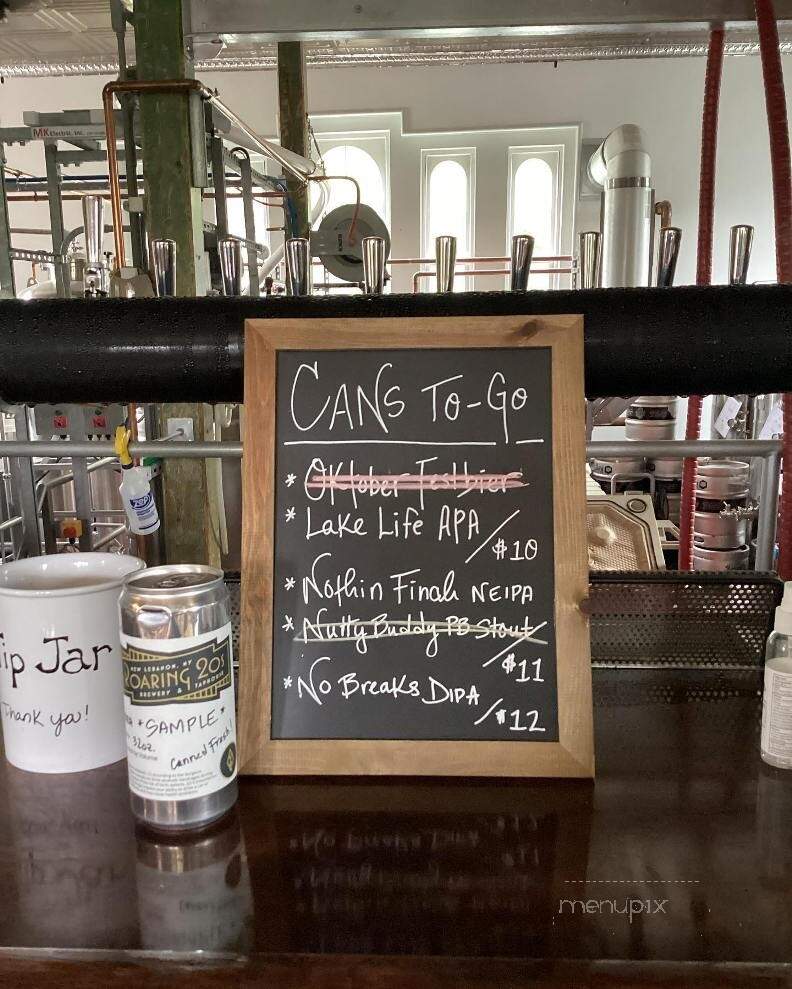 MK Electric, Inc.
CANS TO-GO
* Oktober Festbier
* Lake Life APA
/$10
* Nothin Finah NEIPA
* Nutty Buddy PB Stout
/$11
* No Breaks DIPA
/$12
Tip Jar
Thank you!
NEW LEBANON, NY
ROARING 20s
BREWERY & TAPROOM
*SAMPLE*
32oz.
Canned Fresh!
ZEP
menupix